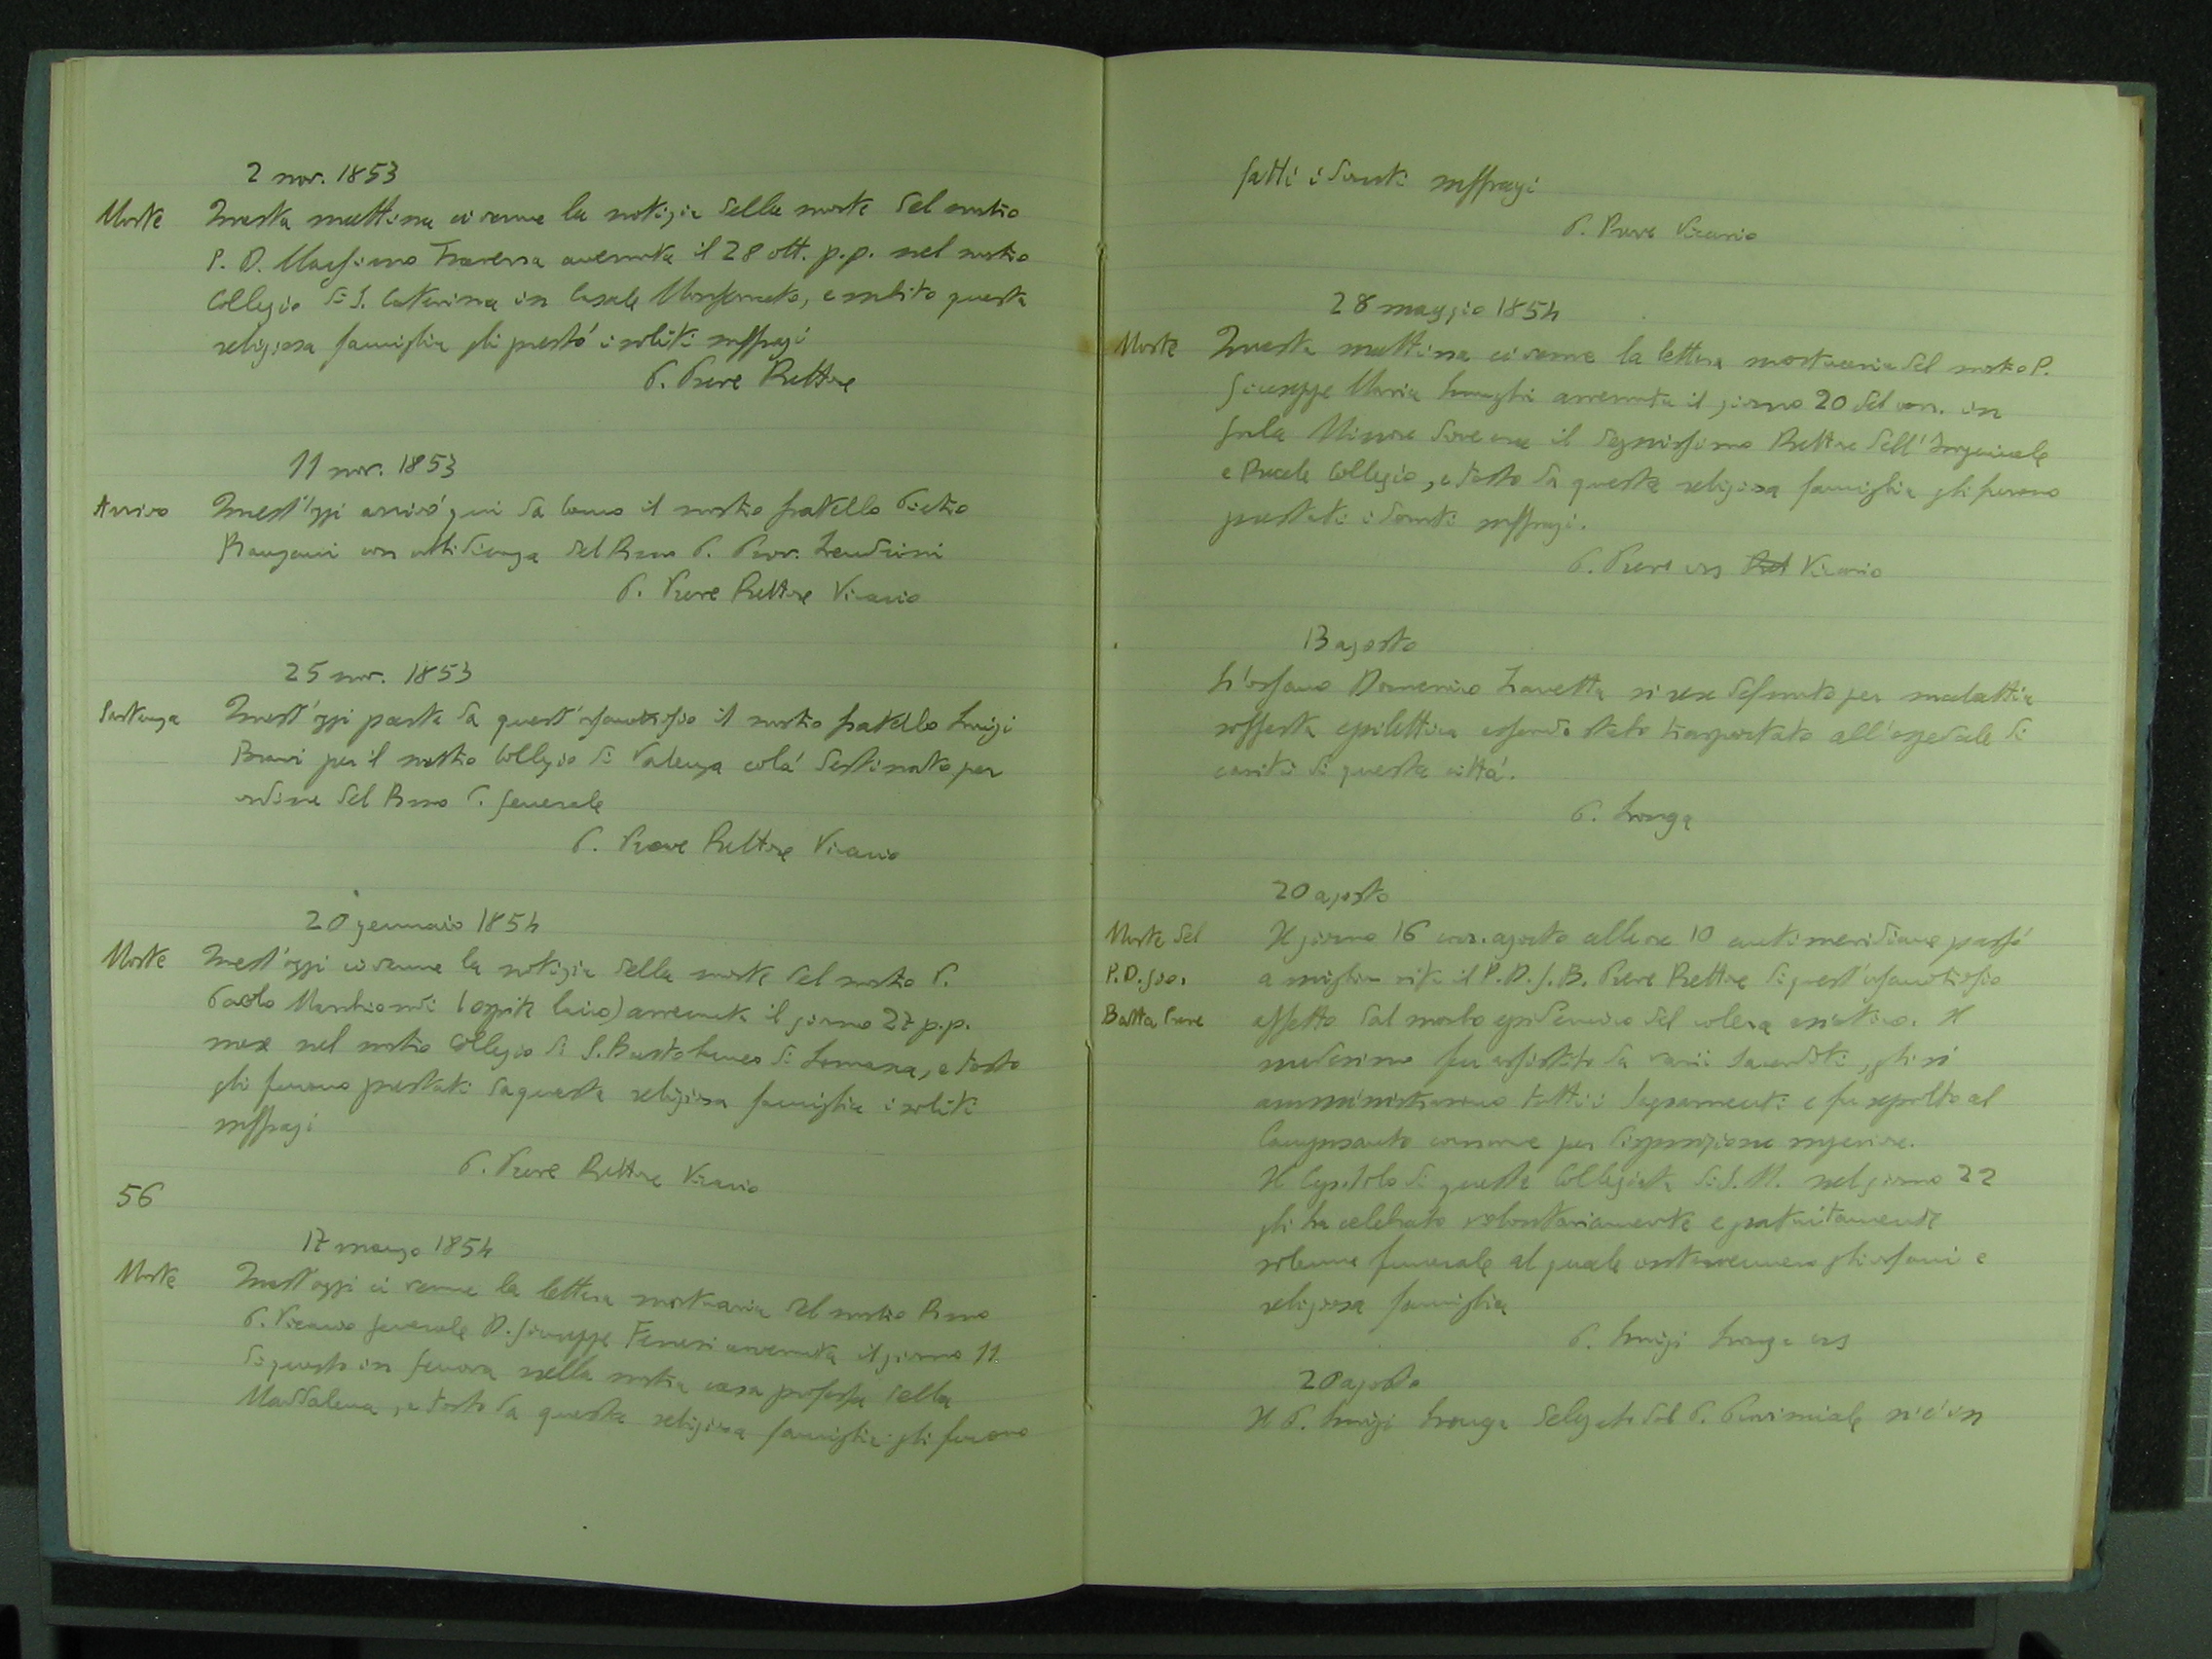 2 nov. 1853
Morte Questa mattina ci venne la notizia della morte del nostro
P. D. Massimo Traversa avvenuta il 28 ott. p.p. nel nostro
Collegio di S. Caterina in Casale Monferrato, e subito questa
religiosa famiglia gli prestò i soliti suffragi
P. Pieve Rettore
11 nov. 1853
Arrivo Quest'oggi arrivò qui da Como il nostro fratello Pietro
con ubbidienza del Rmo P. Prov. Zendrini
P. Pieve Rettore Vicario
25 nov. 1853
Partenza Quest'oggi parte da quest'orfanotrofio il nostro fratello Luigi
Bravi per il nostro Collegio di Valenza colà destinato per
ordine del Rmo P. Generale
P. Pieve Rettore Vicario
20 gennaio 1854
Morte Quest'oggi ci venne la notizia della morte del nostro P.
Paolo Marchiondi (ospite laico) avvenuta il giorno 27 p.p.
mese nel nostro Collegio di S. Bartolomeo di Somasca, e tosto
gli furono prestati da questa religiosa famiglia i soliti
suffragi
P. Pieve Rettore Vicario
56
17 marzo 1854
Morte Quest'oggi ci venne la lettera mortuaria del nostro Rmo
P. Vicario Generale D. Giuseppe Ferreri avvenuta il giorno 11
di questo in Genova nella nostra casa professa della
Maddalena, e tosto da questa religiosa famiglia gli furono
fatti i dovuti suffragi
P. Pieve Vicario
28 maggio 1854
Morte Questa mattina ci venne la lettera mortuaria del nostro P.
Giuseppe Maria avvenuta il giorno 20 del corr. in
Gorla Minore dove era il degnissimo Rettore dell'Imperiale
e Reale Collegio, e tosto da questa religiosa famiglia gli furono
prestati i dovuti suffragi.
P. Pieve crs Ret Vicario
13 agosto
L'orfano Domenico Zanetta si rese defunto per malattia
sofferta epilettica essendo stato trasportato all'ospedale di
carità di questa città.
P. Longa
20 agosto
Morte del P.D. Gio. Batta Pieve
Il giorno 16 corr. agosto alle ore 10 antimeridiane passò
a miglior vita il P. D. G. B. Pieve Rettore di quest'orfanotrofio
affetto dal morbo epidemico del colera asiatico. Il
medesimo fu assistito da varii Sacerdoti, gli si
amministrarono tutti i Sagramenti e fu sepolto al
Camposanto comune per disposizione superiore.
Il Capitolo di questa Collegiata di S. M. nel giorno 22
gli ha celebrato volontariamente e gratuitamente
solenne funerale al quale intervennero gli orfani e
religiosa famiglia
P. Luigi Longa crs
20 agosto
Il P. Luigi Longa delegato dal P. Provinciale si è in